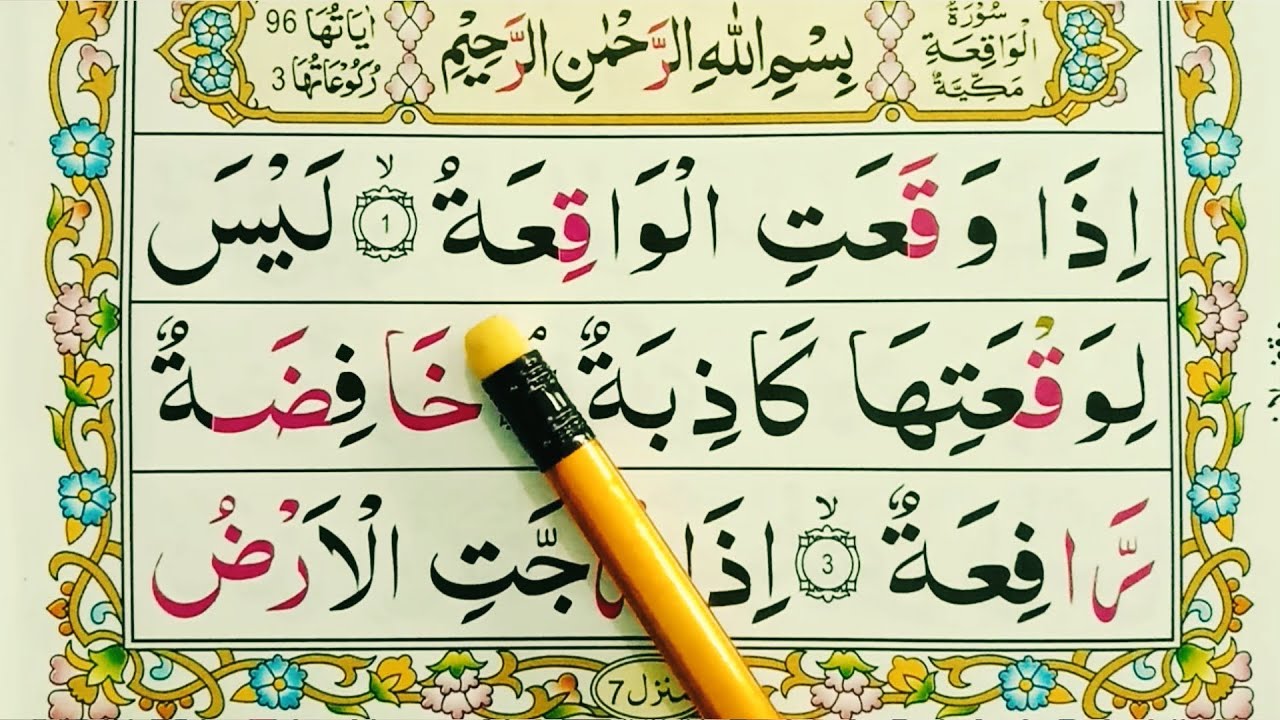 سُوْرَةُ الْوَاقِعَةِ مَكِّيَّةٌ
بِسْمِ اللهِ الرَّحْمٰنِ الرَّحِيْمِ
اٰيَاتُهَا 96
رُكُوْعَاتُهَا 3
اِذَا وَقَعَتِ الْوَاقِعَةُ ۙ 1 لَيْسَ
لِوَقْعَتِهَا كَاذِبَةٌ خَافِضَةٌ
رَّافِعَةٌ ۙ 3 اِذَا جَّتِ الْاَرْضُ
منزل 7